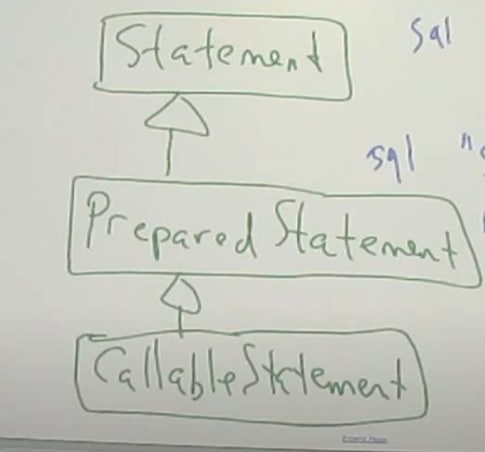 Statement sql
sql "
Prepared Statement
CallableStatement